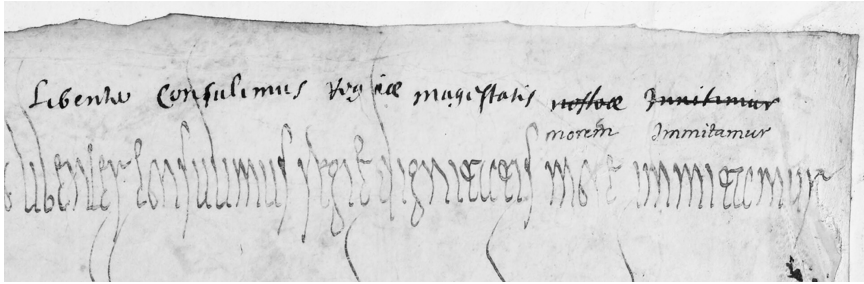 Libenter Consulimus Regiæ magestatis nostræ Innitimur
morem Immitamur
libenter consulimus regię dignitatis more immitamur